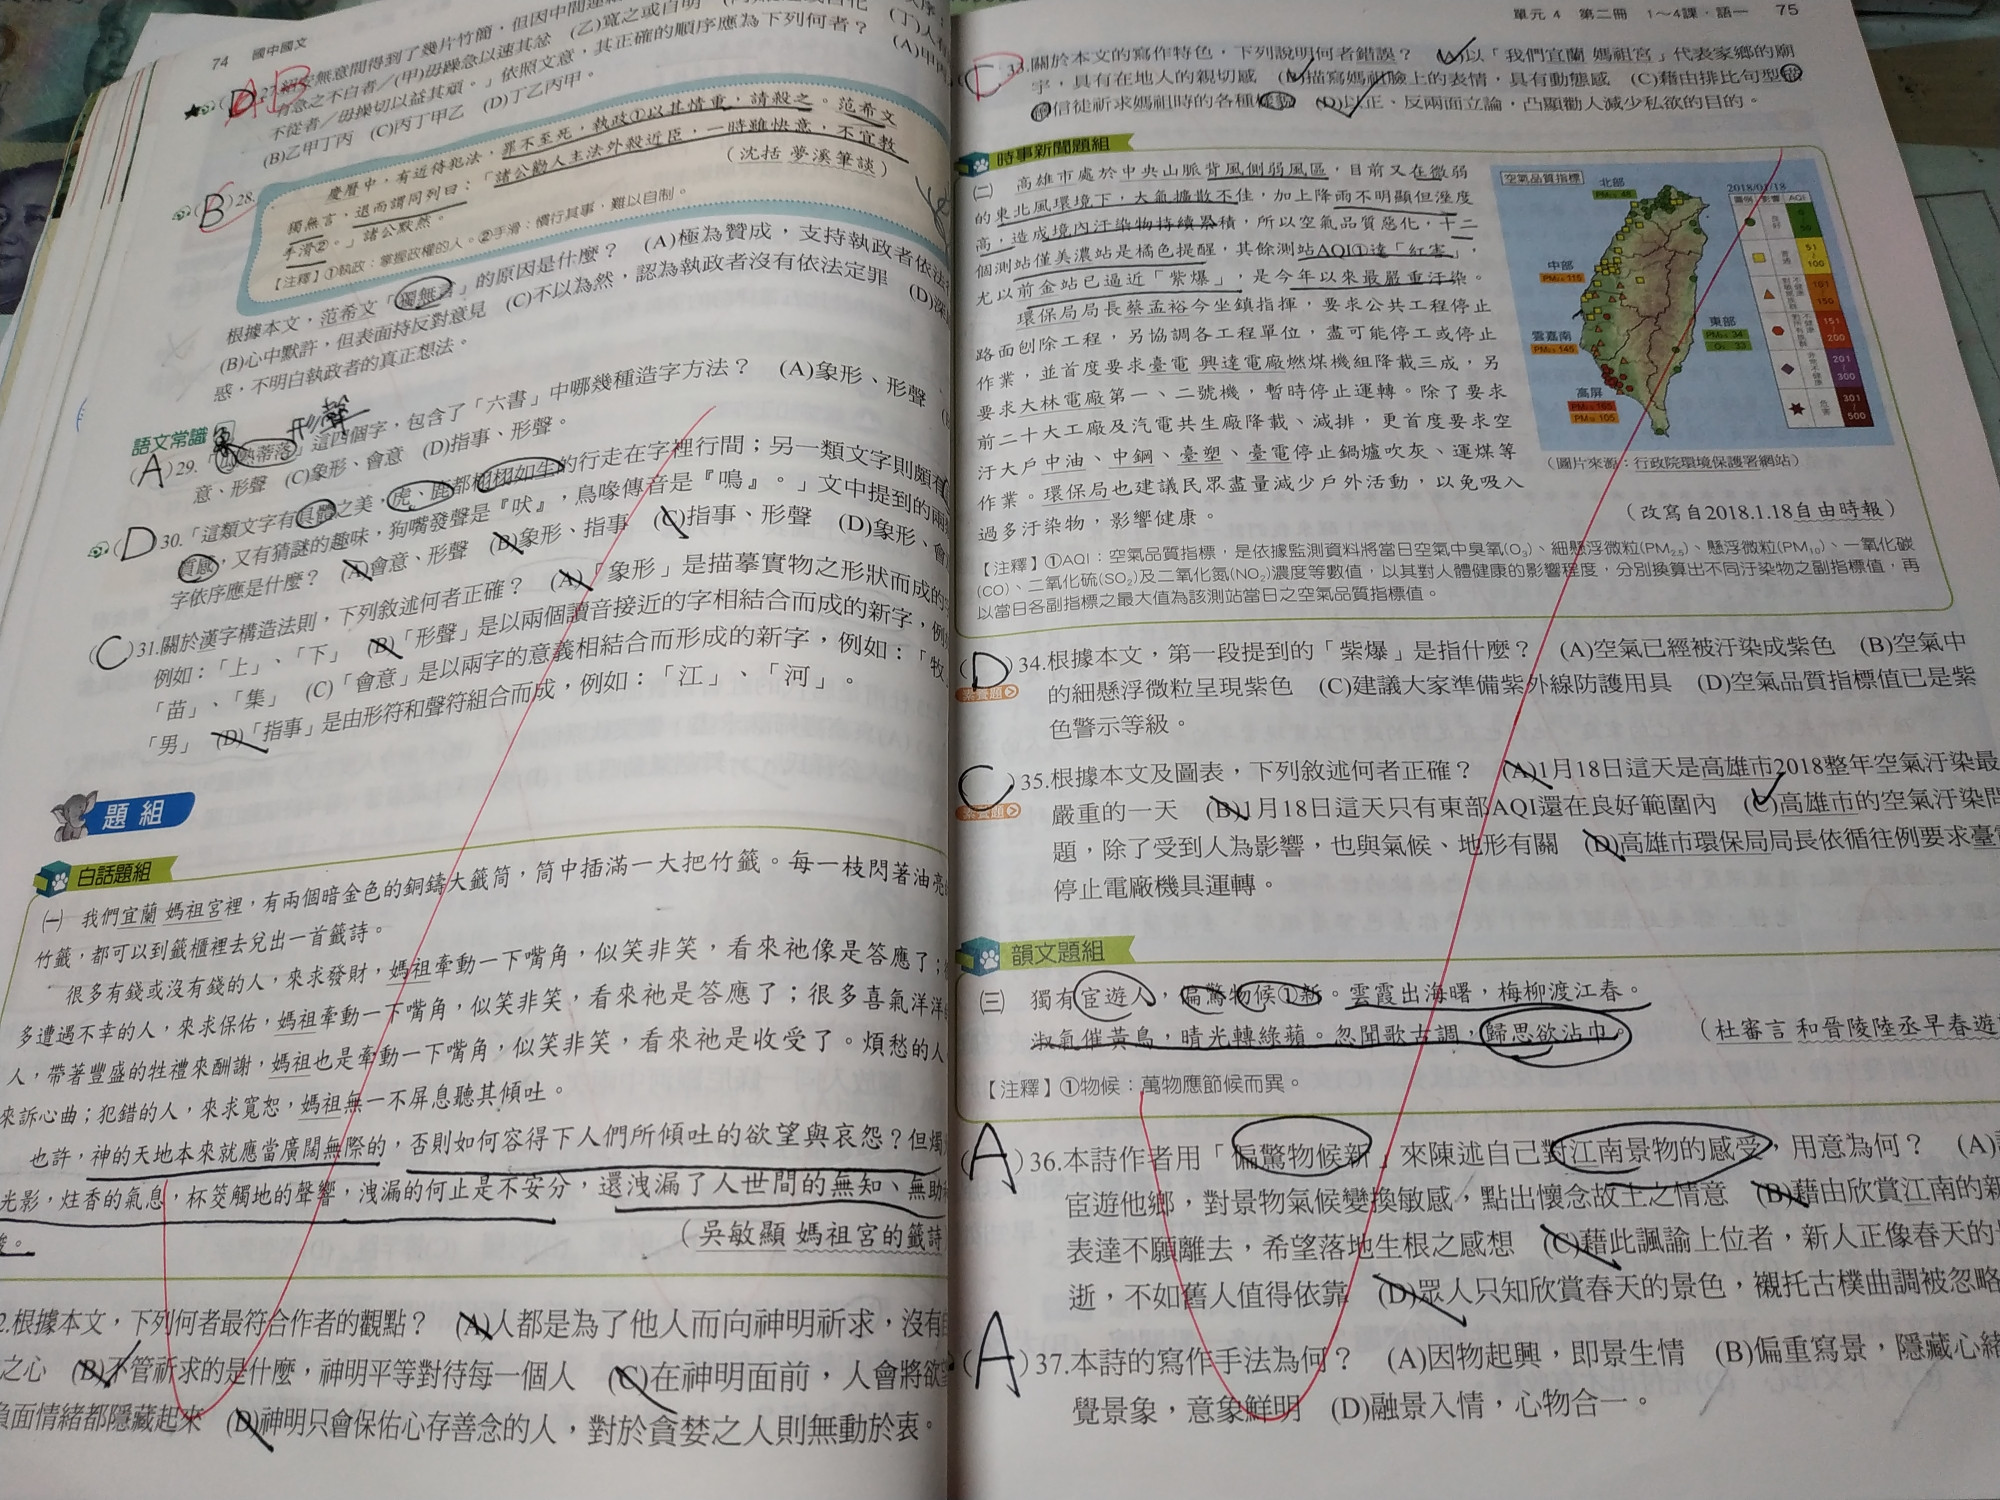 74 國中國文
27.
不從者／毋操切以益其頑。」依照文意，其正確的順序應為下列何者？ (A)甲丙
(B)乙甲丁丙 (C)丙丁甲乙 (D)丁乙丙甲。
B
28.
慶曆中，有近侍犯法，罪不至死，執政①以其情重，請殺之。范希文
獨無言，退而謂同列曰：「諸公勸人主法外殺近臣，一時雖快意，不宜教
手滑②。」諸公默然。 （沈括 夢溪筆談）
【注釋】①執政：掌握政權的人。②手滑：慣行其事，難以自制。
根據本文，范希文「獨無言」的原因是什麼？ (A)極為贊成，支持執政者依法
(B)心中默許，但表面持反對意見 (C)不以為然，認為執政者沒有依法定罪 (D)深
惑，不明白執政者的真正想法。
語文常識
形聲
(A)29.「瓜熟蒂落」這四個字，包含了「六書」中哪幾種造字方法？ (A)象形、形聲
意、形聲 (C)象形、會意 (D)指事、形聲。
(D)30.「這類文字有具體之美，虎、鹿都栩栩如生的行走在字裡行間；另一類文字則頗有
質感，又有猜謎的趣味，狗嘴發聲是『吠』，鳥喙傳音是『鳴』。」文中提到的兩
字依序應是什麼？ (A)會意、形聲 (B)象形、指事 (C)指事、形聲 (D)象形、會
(C)31.關於漢字構造法則，下列敘述何者正確？ (A)「象形」是描摹實物之形狀而成的
例如：「上」、「下」 (B)「形聲」是以兩個讀音接近的字相結合而成的新字，例
「苗」、「集」 (C)「會意」是以兩字的意義相結合而形成的新字，例如：「牧
「男」 (D)「指事」是由形符和聲符組合而成，例如：「江」、「河」。
題組
白話題組
㈠ 我們宜蘭 媽祖宮裡，有兩個暗金色的銅鑄大籤筒，筒中插滿一大把竹籤。每一枝閃著油亮
竹籤，都可以到籤櫃裡去兌出一首籤詩。
很多有錢或沒有錢的人，來求發財，媽祖牽動一下嘴角，似笑非笑，看來祂像是答應了；
多遭遇不幸的人，來求保佑，媽祖牽動一下嘴角，似笑非笑，看來祂是答應了；很多喜氣洋洋
人，帶著豐盛的牲禮來酬謝，媽祖也是牽動一下嘴角，似笑非笑，看來祂是收受了。煩愁的人
來訴心曲；犯錯的人，來求寬恕，媽祖無一不屏息聽其傾吐。
也許，神的天地本來就應當廣闊無際的，否則如何容得下人們所傾吐的欲望與哀怨？但燭
光影，炷香的氣息，杯筊觸地的聲響，洩漏的何止是不安分，還洩漏了人世間的無知、無助
（吳敏顯 媽祖宮的籤詩
2.根據本文，下列何者最符合作者的觀點？ (A)人都是為了他人而向神明祈求，沒有
之心 (B)不管祈求的是什麼，神明平等對待每一個人 (C)在神明面前，人會將欲
負面情緒都隱藏起來 (D)神明只會保佑心存善念的人，對於貪婪之人則無動於衷。
單元 4 第二冊 1～4課・語一 75
(C)33.關於本文的寫作特色，下列說明何者錯誤？ (A)以「我們宜蘭 媽祖宮」代表家鄉的廟
宇，具有在地人的親切感 (B)描寫媽祖臉上的表情，具有動態感 (C)藉由排比句型
信徒祈求媽祖時的各種 (D)以正、反兩面立論，凸顯勸人減少私欲的目的。
時事新聞題組
㈡ 高雄市處於中央山脈背風側弱風區，目前又在微弱
的東北風環境下，大氣擴散不佳，加上降雨不明顯但溼度
高，造成境內汙染物持續累積，所以空氣品質惡化，十二
個測站僅美濃站是橘色提醒，其餘測站AQI①達「紅害」，
尤以前金站已逼近「紫爆」，是今年以來最嚴重汙染。
環保局局長蔡孟裕今坐鎮指揮，要求公共工程停止
路面刨除工程，另協調各工程單位，盡可能停工或停止
作業，並首度要求臺電 興達電廠燃煤機組降載三成，另
要求大林電廠第一、二號機，暫時停止運轉。除了要求
前二十大工廠及汽電共生廠降載、減排，更首度要求空
汙大戶中油、中鋼、臺塑、臺電停止鍋爐吹灰、運煤等
作業。環保局也建議民眾盡量減少戶外活動，以免吸入
過多汙染物，影響健康。
（改寫自2018.1.18自由時報）
空氣品質指標
2018/01/18
北部
中部
雲嘉南
高屏
東部
AQI
51/100
101/150
151/200
201/300
301/500
（圖片來源：行政院環境保護署網站）
【注釋】①AQI：空氣品質指標，是依據監測資料將當日空氣中臭氧(O₃)、細懸浮微粒(PM₂.₅)、懸浮微粒(PM₁₀)、一氧化碳
(CO)、二氧化硫(SO₂)及二氧化氮(NO₂)濃度等數值，以其對人體健康的影響程度，分別換算出不同汙染物之副指標值，再
以當日各副指標之最大值為該測站當日之空氣品質指標值。
(D)34.根據本文，第一段提到的「紫爆」是指什麼？ (A)空氣已經被汙染成紫色 (B)空氣中
素養題
的細懸浮微粒呈現紫色 (C)建議大家準備紫外線防護用具 (D)空氣品質指標值已是紫
色警示等級。
(C)35.根據本文及圖表，下列敘述何者正確？ (A)1月18日這天是高雄市2018整年空氣汙染最
素養題
嚴重的一天 (B)1月18日這天只有東部AQI還在良好範圍內 (C)高雄市的空氣汙染問
題，除了受到人為影響，也與氣候、地形有關 (D)高雄市環保局局長依循往例要求臺
停止電廠機具運轉。
韻文題組
㈢ 獨有宦遊人，偏驚物候①新。雲霞出海曙，梅柳渡江春。
淑氣催黃鳥，晴光轉綠蘋。忽聞歌古調，歸思欲沾巾。 （杜審言 和晉陵陸丞早春遊
【注釋】①物候：萬物應節候而異。
(A)36.本詩作者用「偏驚物候新」來陳述自己對江南景物的感受，用意為何？ (A)
宦遊他鄉，對景物氣候變換敏感，點出懷念故土之情意 (B)藉由欣賞江南的新
表達不願離去，希望落地生根之感想 (C)藉此諷諭上位者，新人正像春天的
逝，不如舊人值得依靠 (D)眾人只知欣賞春天的景色，襯托古樸曲調被忽略
(A)37.本詩的寫作手法為何？ (A)因物起興，即景生情 (B)偏重寫景，隱藏心緒
覺景象，意象鮮明 (D)融景入情，心物合一。